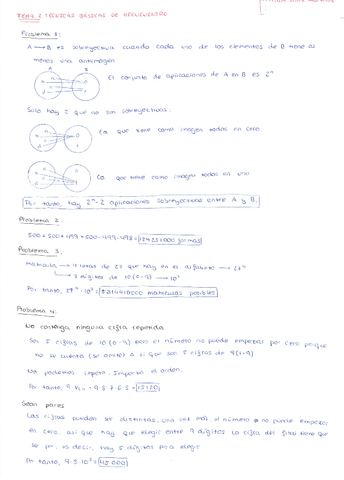 TEMA 2 TÉCNICAS BÁSICAS DE RECUENTO
Problema 1:
A → B es sobreyectiva cuando cada uno de los elementos de B tiene al
menos una antiimagen
El conjunto de aplicaciones de A en B es 2ⁿ
Solo hay 2 que no son sobreyectivas:
La que tiene como imagen todos en cero
La que tiene como imagen todos en uno
Por tanto, hay 2ⁿ-2 aplicaciones sobreyectivas entre A y B.
Problema 2
Problema 3
Matrícula → 4 letras de 27 que hay en el alfabeto → 27⁴
→ 3 dígitos de 10 (0-9) → 10³
Por tanto, 27⁴·10³ = matrículas posibles
Problema 4:
No contenga ninguna cifra repetida
Son 5 cifras de 10 (0-9) pero el número no puede empezar por cero porque
no se cuenta (se omite) A si que son 5 cifras de 9 (1-9)
No podemos repetir. Importa el orden.
Por tanto, 9·
Sean pares
Las cifras pueden ser distintas, una vez más el número no puede empezar
en cero, así que hay que elegir entre 9 dígitos. La cifra del final tiene que
ser par, es decir, hay 5 dígitos para elegir
Por tanto, 9·5·10³ = 45000